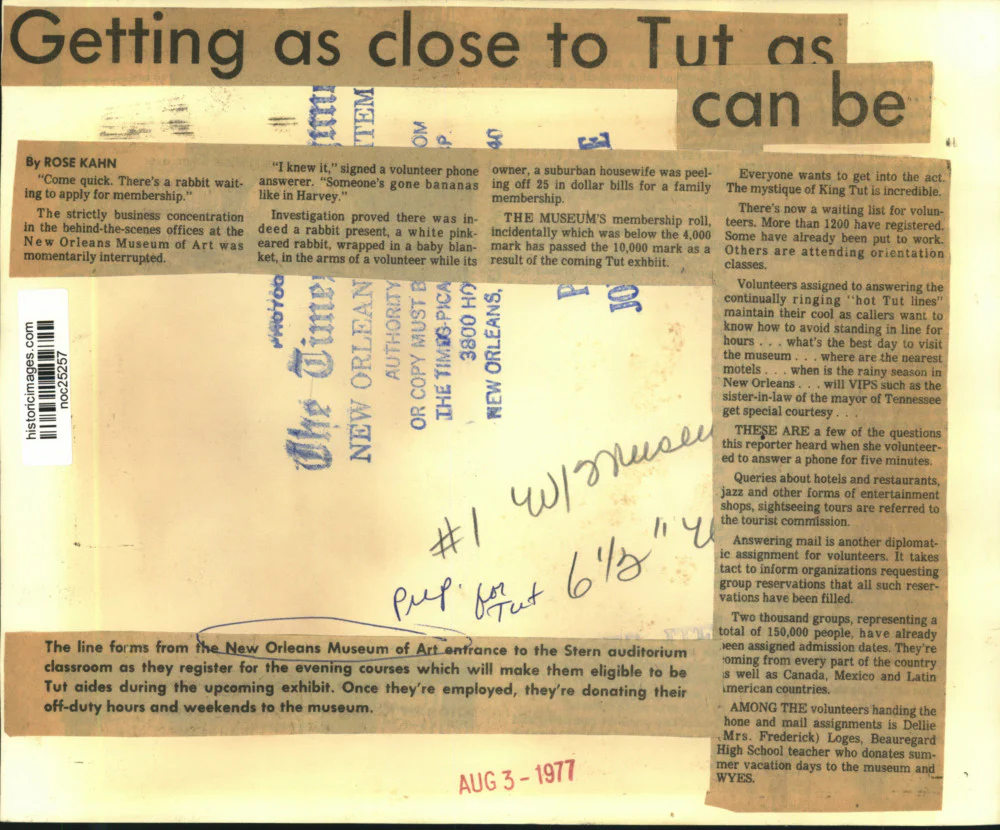 Getting as close to Tut as
can be
By ROSE KAHN
"Come quick. There's a rabbit wait-
ing to apply for membership."
The strictly business concentration
in the behind-the-scenes offices at the
New Orleans Museum of Art was
momentarily interrupted.
"I knew it," signed a volunteer phone
answerer. "Someone's gone bananas
like in Harvey."
Investigation proved there was in-
deed a rabbit present, a white pink-
eared rabbit, wrapped in a baby blan-
ket, in the arms of a volunteer while its
owner, a suburban housewife was peel-
ing off 25 in dollar bills for a family
membership.
THE MUSEUM'S membership roll,
incidentally which was below the 4,000
mark has passed the 10,000 mark as a
result of the coming Tut exhbiit.
Everyone wants to get into the act.
The mystique of King Tut is incredible.
There's now a waiting list for volun-
teers. More than 1200 have registered.
Some have already been put to work.
Others are attending orientation
classes.
Volunteers assigned to answering the
continually ringing "hot Tut lines"
maintain their cool as callers want to
know how to avoid standing in line for
hours . . . what's the best day to visit
the museum . . . where are the nearest
motels . . . when is the rainy season in
New Orleans . . . will VIPS such as the
sister-in-law of the mayor of Tennessee
get special courtesy . . .
THESE ARE a few of the questions
this reporter heard when she volunteer-
ed to answer a phone for five minutes.
Queries about hotels and restaurants,
jazz and other forms of entertainment
shops, sightseeing tours are referred to
the tourist commission.
Answering mail is another diplomat-
ic assignment for volunteers. It takes
tact to inform organizations requesting
group reservations that all such reser-
vations have been filled.
Two thousand groups, representing a
total of 150,000 people, have already
been assigned admission dates. They're
coming from every part of the country
as well as Canada, Mexico and Latin
American countries.
AMONG THE volunteers handing the
hone and mail assignments is Dellie
Mrs. Frederick) Loges, Beauregard
High School teacher who donates sum-
mer vacation days to the museum and
WYES.
The Times
NEW ORLEAN
ITEM
AUTHORITY
OM
OR COPY MUST B
P.
THE TIMES-PICA
3800 HO
40
NEW ORLEANS,
historicimages.com
noc25257
#1 W/3 Museu
6 1/2"
Prep. for
Tut
The line forms from the New Orleans Museum of Art entrance to the Stern auditorium
classroom as they register for the evening courses which will make them eligible to be
Tut aides during the upcoming exhibit. Once they're employed, they're donating their
off-duty hours and weekends to the museum.
AUG 3 - 1977